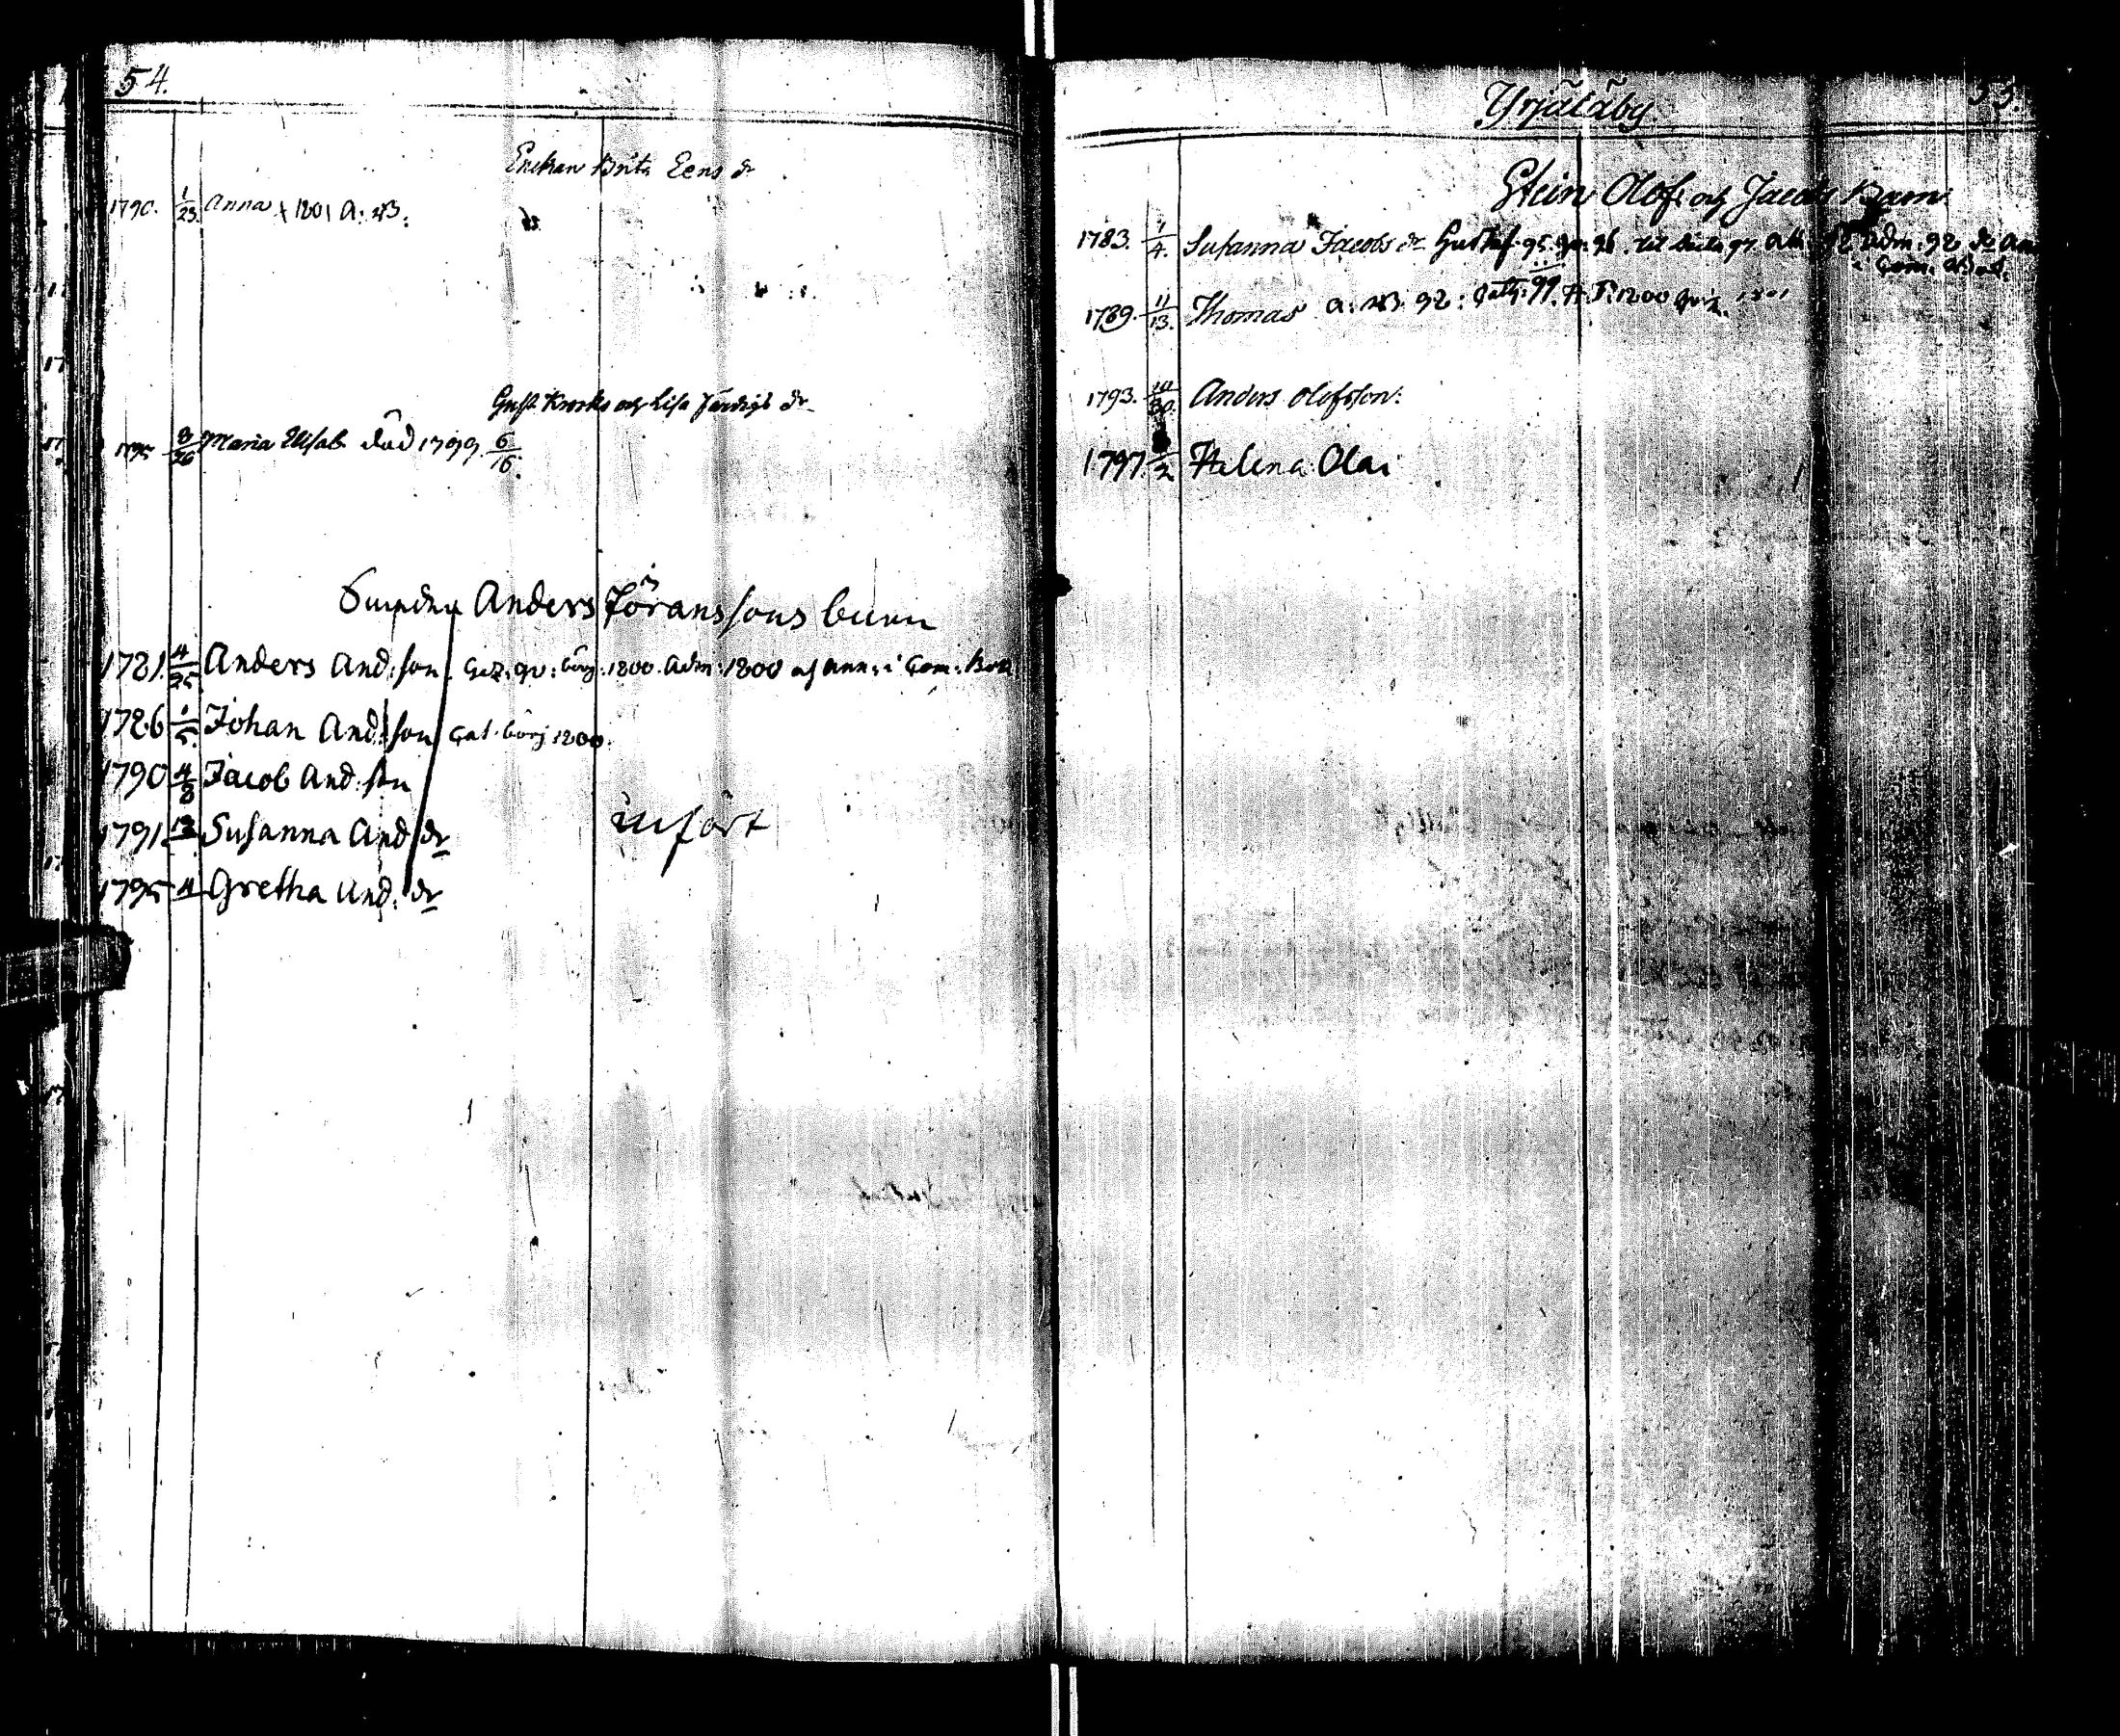 54.
Enckan Brita Eens dr
1790. 1/23. Anna + 1801 A: B:
Gust. Krooks och Lisa dr
1795 8/26 Maria Elisab. död 1799 6/16.
Anders Jöranssons barn
1781. 4/25 Anders And:son. qv: börj: 1800. adm: 1800 och ann: i Com: Bok
1786 1/5. Johan And:son Cat. börj 1800.
1790 4/8 Jacob And:son
1791 12 Susanna And dr
infört
1795 4 Gretha And: dr
Yrjäläby
55.
Stein Olofs och Jacobs Barn
1783. 1/4. Susanna Jacobs dr 95. 96. 97. adm: 92
i Com: Bok.
1789. 11/13. Thomas a: B. 92: 99. 1800 1801
1793. 10/30. Anders Olofsson:
1797. /2 Helena Olai